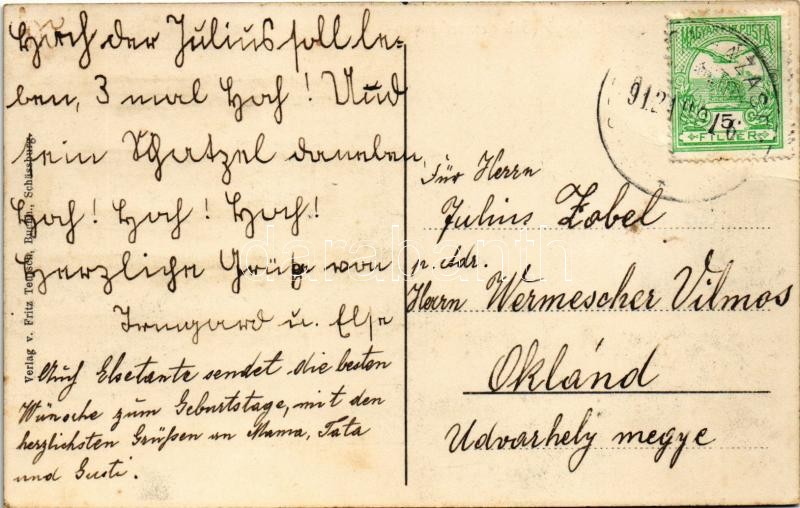 Hoch der Julius soll le-
ben, 3 mal Hoh! Und
ein Schatzel daneben,
Hoh! Hoh! Hoh!
Herzliche Grüße von
Irmgard u. Else
Auch Elsetante sendet die besten
Wünsche zum Geburtstage, mit den
herzlichsten Grüßen an Mama, Tata
und Gusti.
Verlag v. Fritz Teutsch, Buchh., Schässburg.
MAGYAR KIR. POSTA
5
FILLÉR
Für Herrn
Julius Zobel
p. Adr.
Herrn Wermescher Vilmos
Oklánd
Udvarhely megye
darabanth